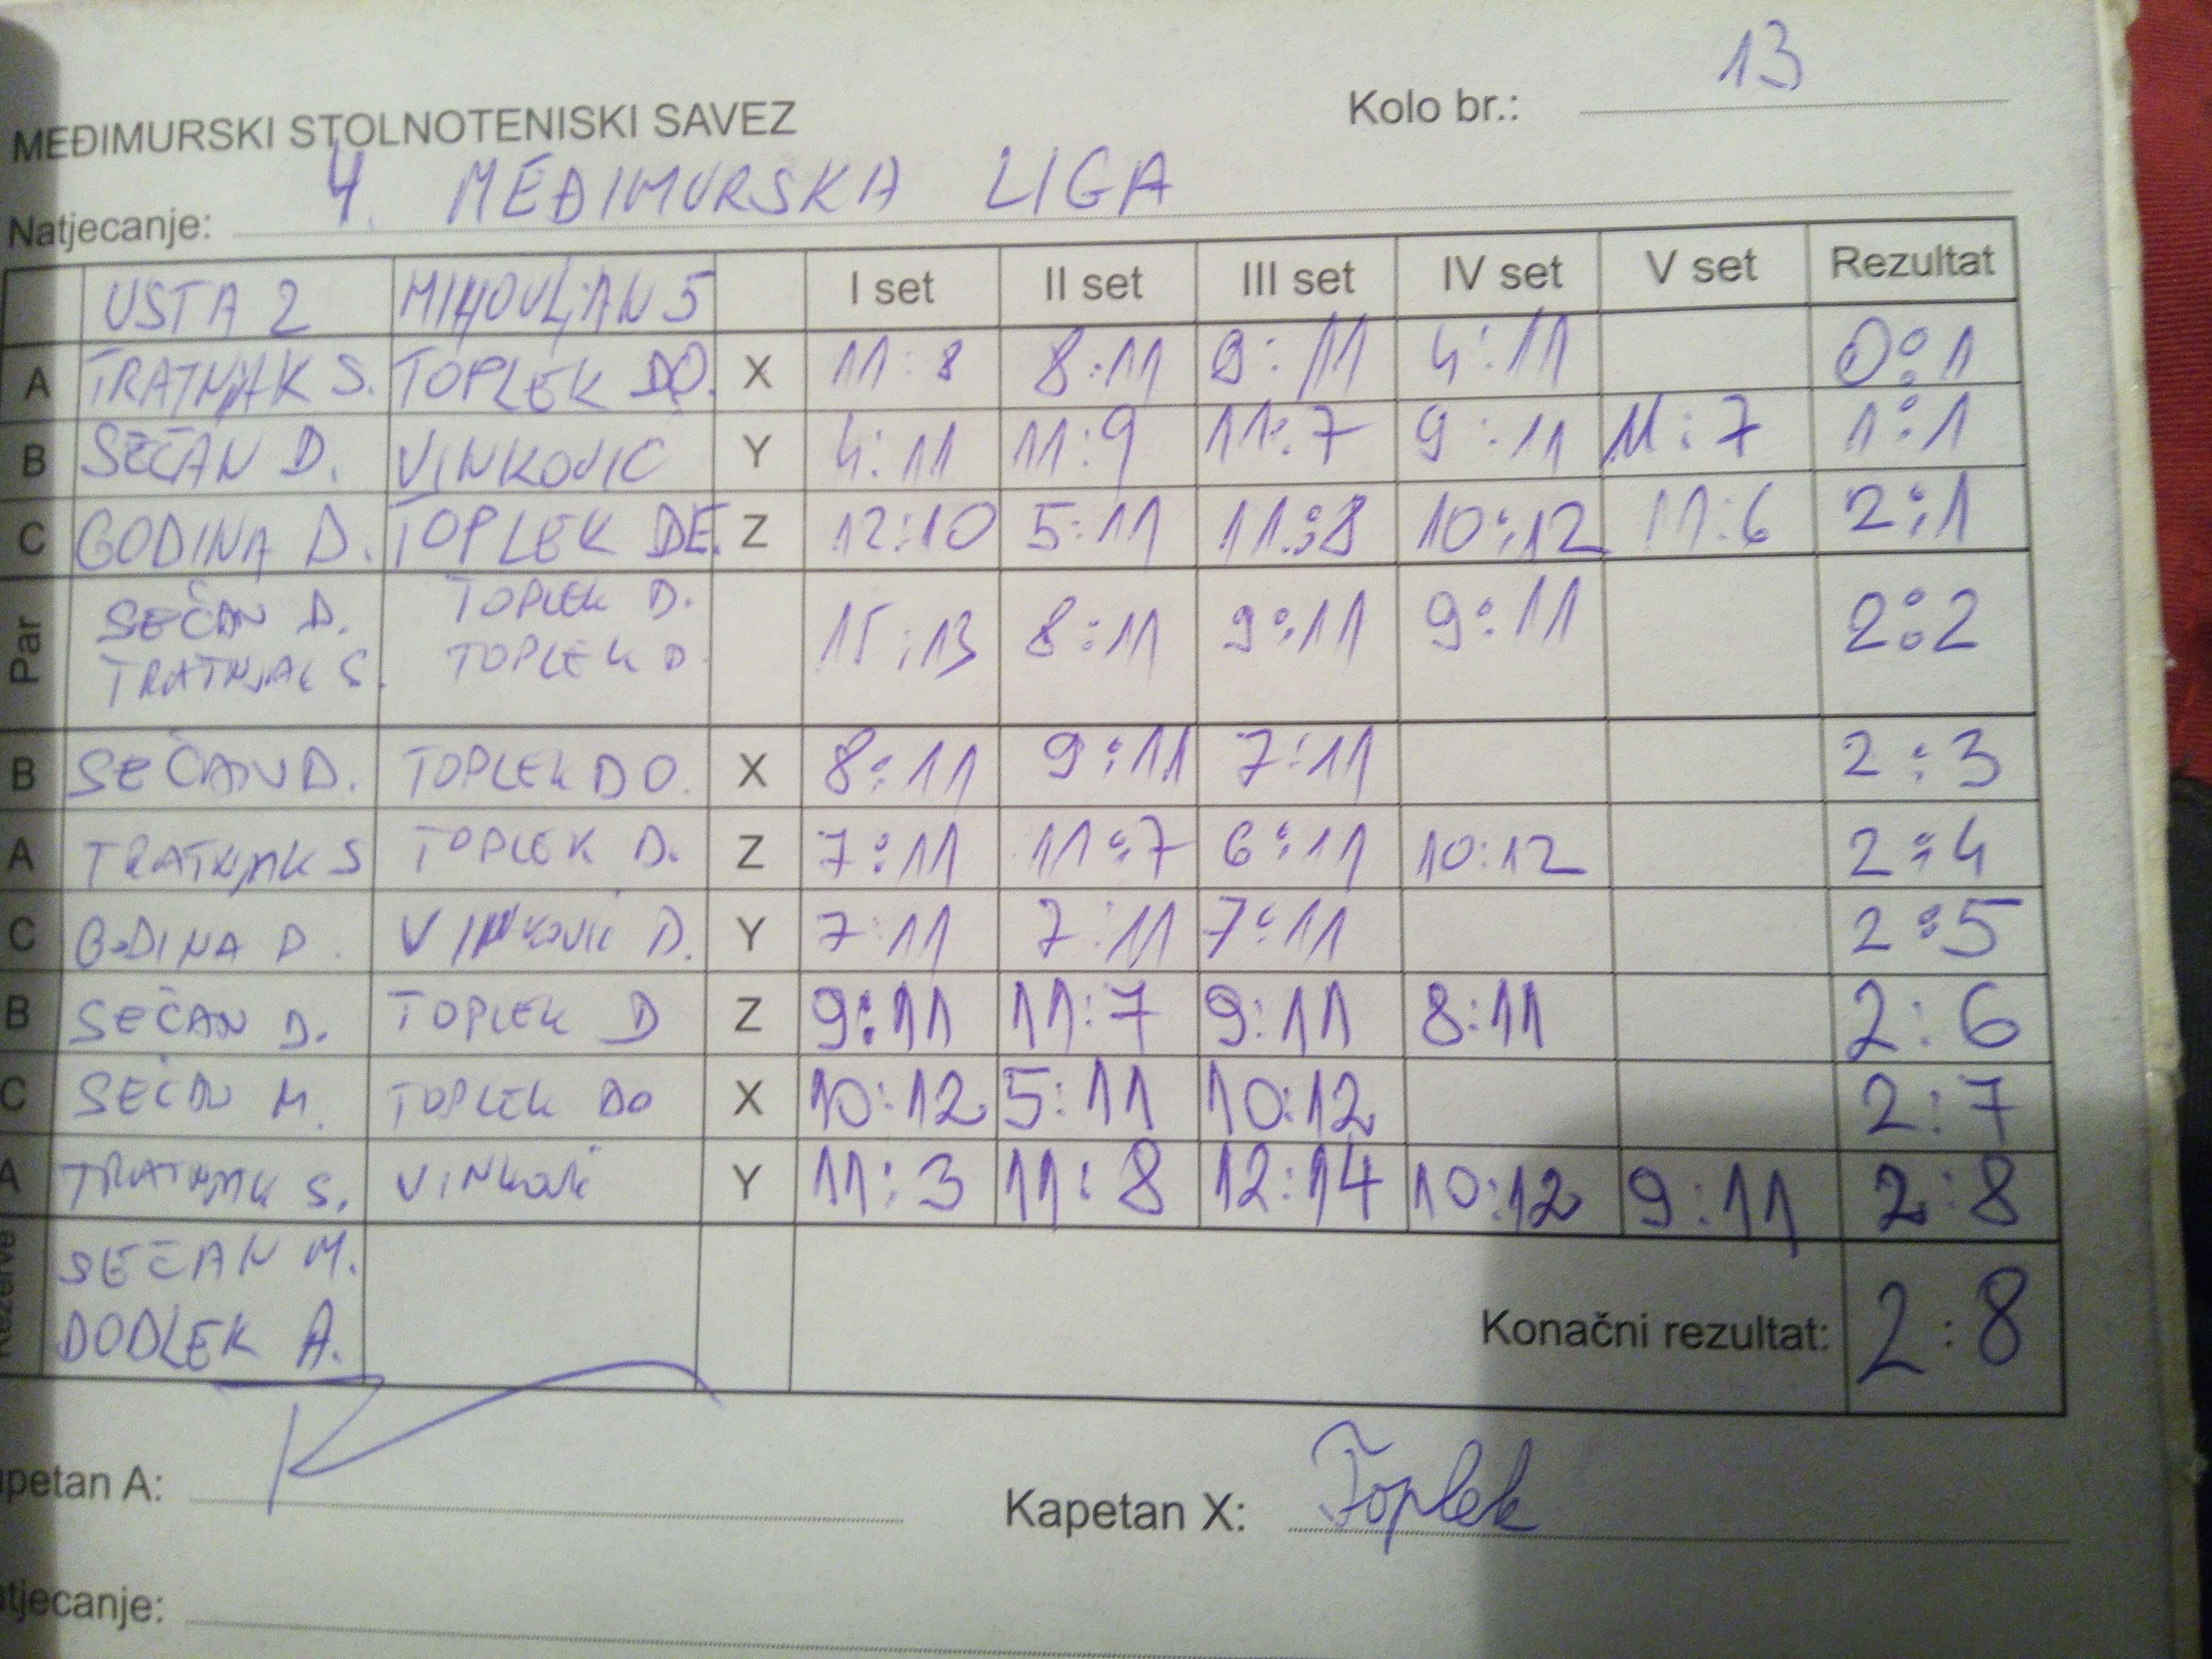 Kolo br.: 13
MEĐIMURSKI STOLNOTENISKI SAVEZ
Natjecanje: 4. MEĐIMURSKA LIGA
USTA 2 MIHOVLJAN 5 I set II set III set IV set V set Rezultat
A TRATNJAK S. TOPLEK DO. X 11:8 8:11 9:11 4:11 0:1
B SEČAN D. VINKOVIC Y 4:11 11:9 11:7 9:11 11:7 1:1
C GODINA D. TOPLEK DE. Z 12:10 5:11 11:8 10:12 11:6 2:1
Par SEČAN D. TOPLEK D. 15:13 8:11 9:11 9:11 2:2
TRATNJAK S. TOPLEK D
B SEČAN D. TOPLEK DO. X 8:11 9:11 7:11 2:3
A TRATNJAK S TOPLEK D. Z 7:11 11:7 6:11 10:12 2:4
C GODINA D. VINKOVIĆ D. Y 7:11 7:11 7:11 2:5
B SEČAN D. TOPLEK D Z 9:11 11:7 9:11 8:11 2:6
C SEČAN M. TOPLEK DO X 10:12 5:11 10:12 2:7
A TRATNJAK S. VINKOVIĆ Y 11:3 11:8 12:14 10:12 9:11 2:8
SEČAN M.
DODLEK A.
Konačni rezultat: 2:8
petan A: Kapetan X: Toplek
tjecanje: